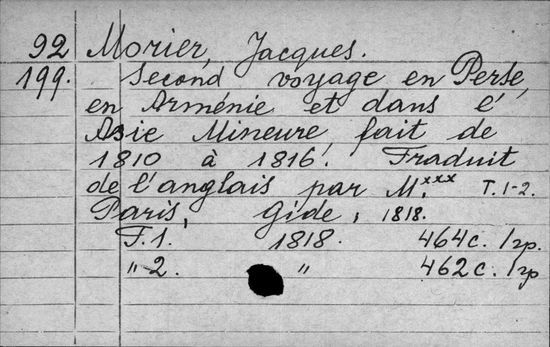 92 Morier, Jacques.
199. Second voyage en Perse,
en Arménie et dans l'
Asie Mineure, fait de
1810 à 1816. Traduit
de l'anglais par M.xxx T. 1-2.
Paris, Gide, 1818.
T. 1. 1818. 464 c. 1 гр.
" 2. " 462 c. 1 гр